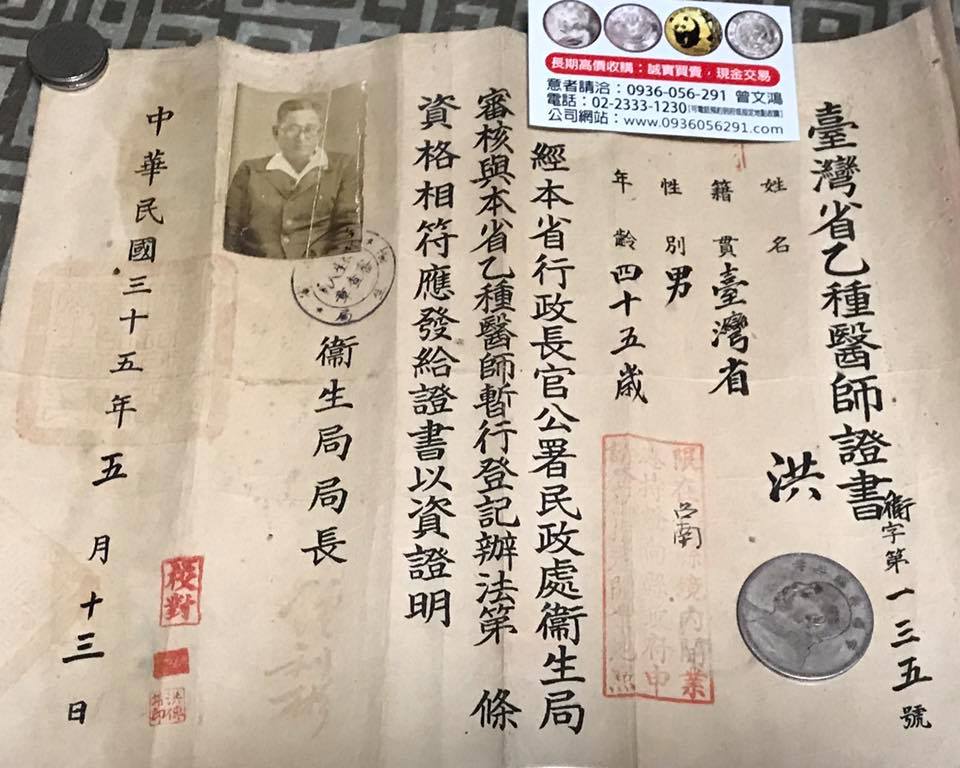 長期高價收購：誠實買賣，現金交易
意者請洽：0936-056-291 曾文鴻
電話：02-2333-1230
公司網站：www.0936056291.com
臺灣省乙種醫師證書
衛字第一三五號
姓名 洪
籍貫臺灣省
性別男
年齡四十五歲
經本省行政長官公署民政處衛生局
審核與本省乙種醫師暫行登記辦法第 條
資格相符應發給證書以資證明
衛生局局長
中華民國三十五年五月十三日
校對
限在 南縣境內開業